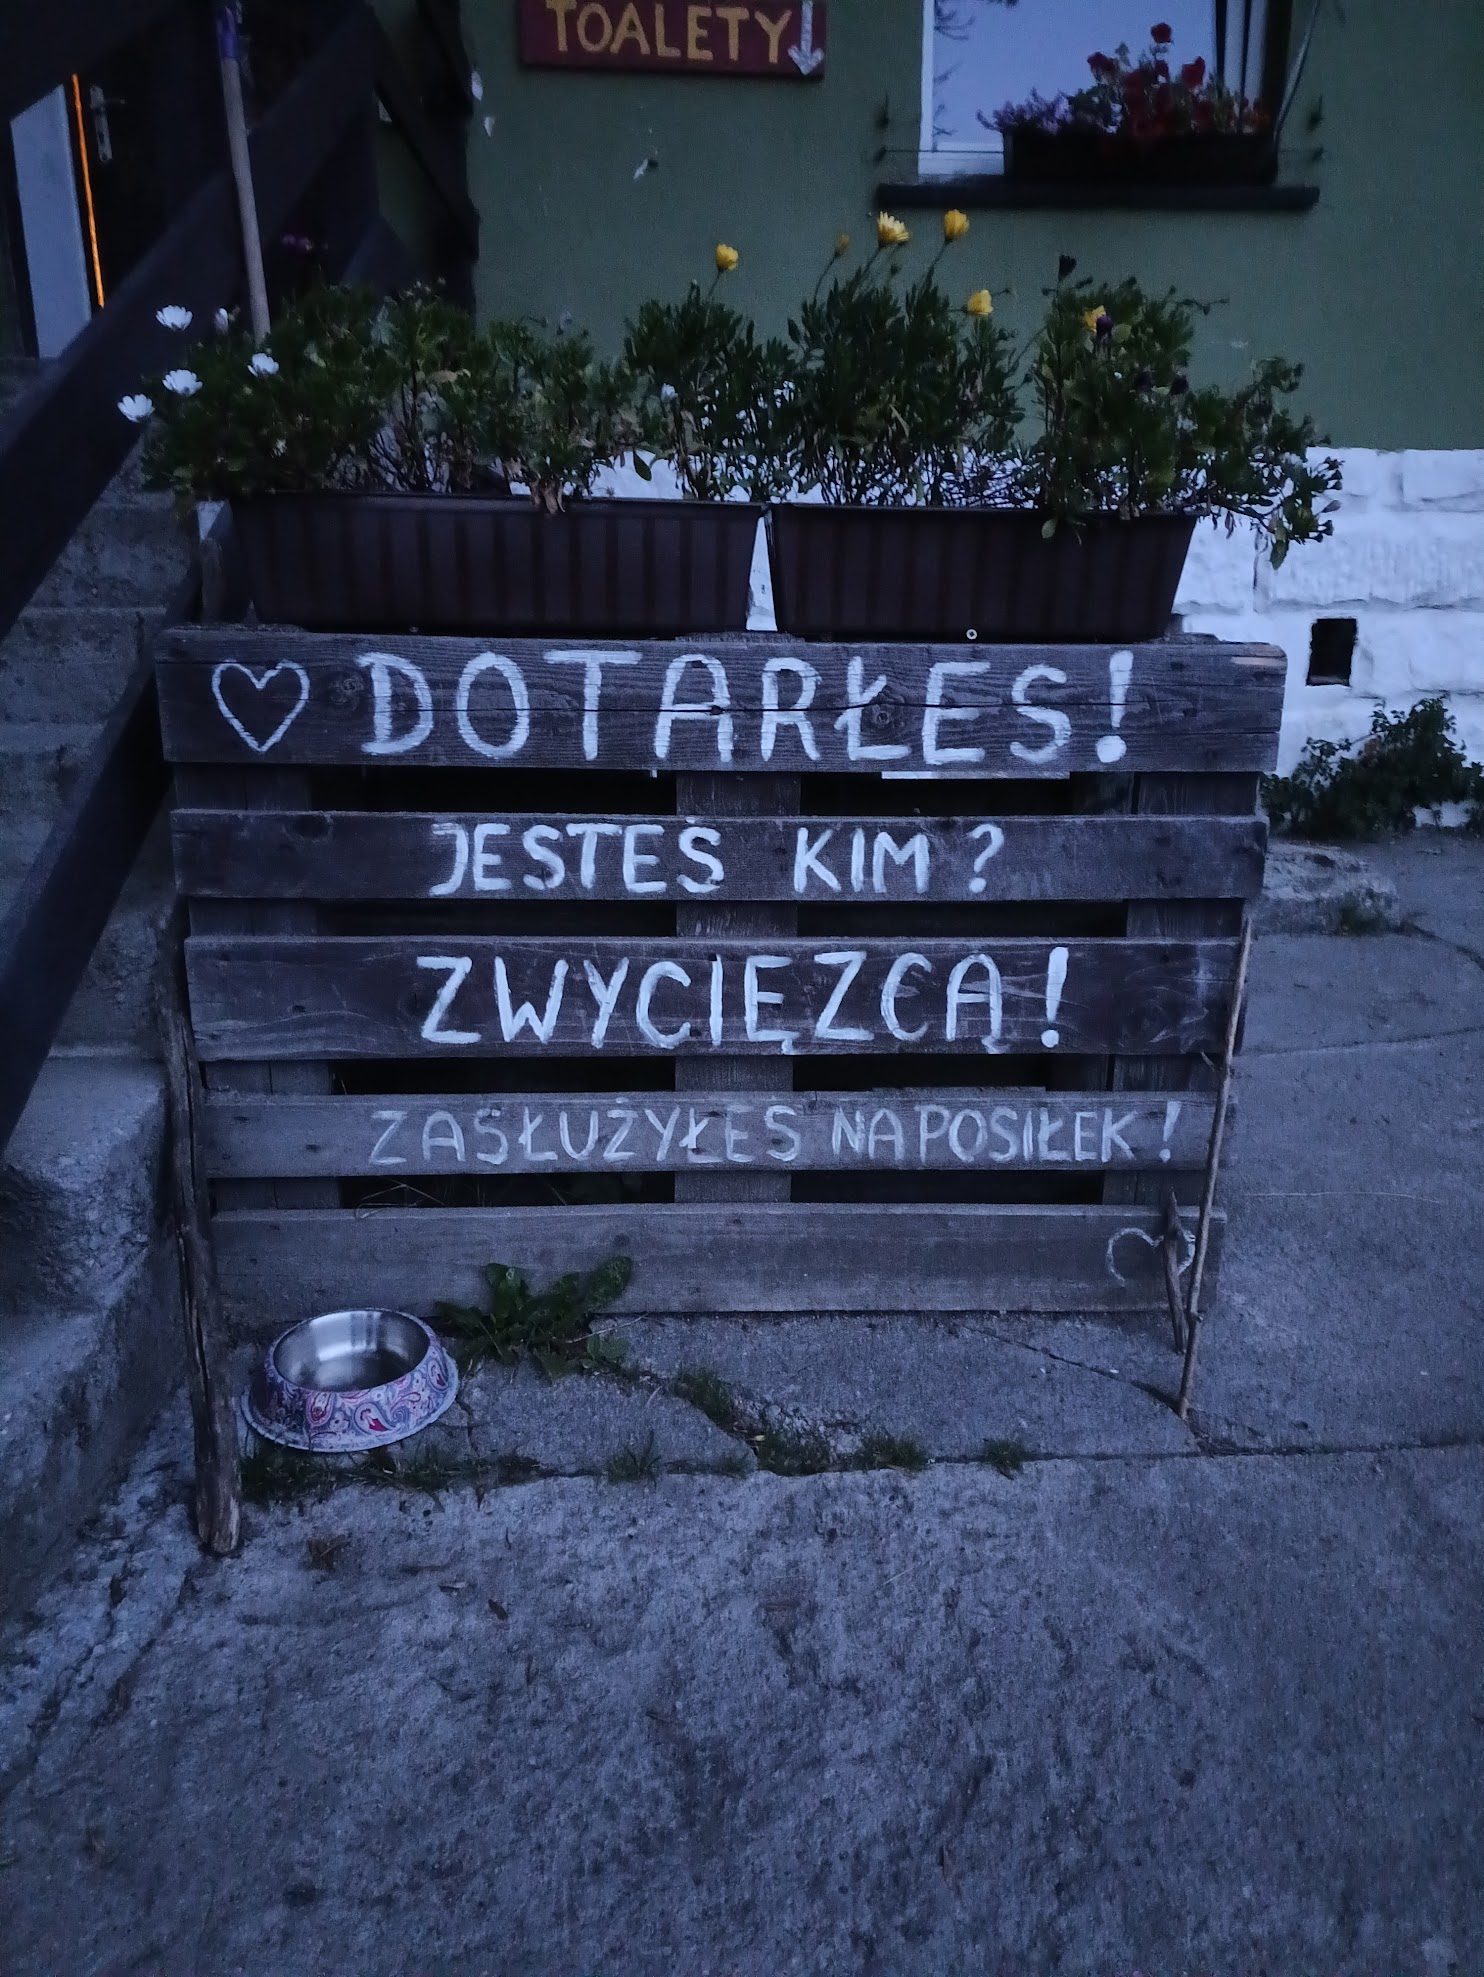 TOALETY
DOTARŁES!
JESTEŚ KIM?
ZWYCIĘZCĄ!
ZASŁUŻYŁES NA POSIŁEK!